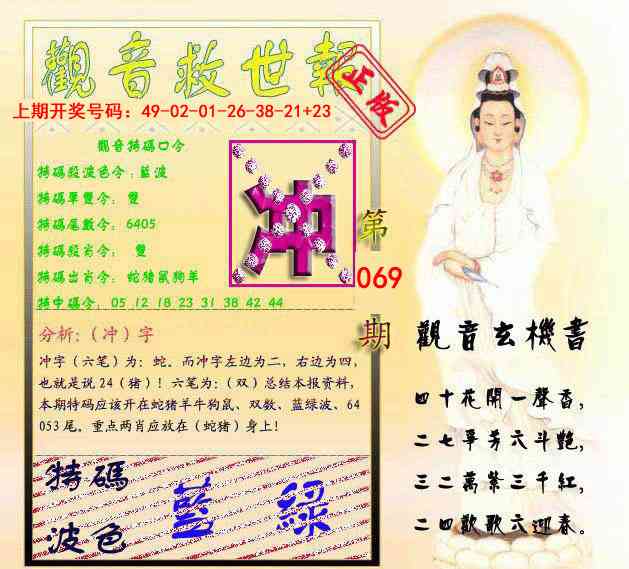 觀音救世報
正版
上期开奖号码：49-02-01-26-38-21+23
觀音特碼口令
特碼段波色令：藍波
特碼單雙令：雙
特碼尾數令：6405
特碼段肖令：雙
特碼出肖令：蛇猪鼠狗羊
特中碼令：05 12 18 23 31 38 42 44
冲
第
069
期
分析：（冲）字
冲字（六笔）为：蛇。而冲字左边为二，右边为四，
也就是说24（猪）！六笔为：（双）总结本报资料，
本期特码应该开在蛇猪羊牛狗鼠、双数、蓝绿波、64
053尾。重点两肖应放在（蛇猪）身上！
特碼
波色
藍 綠
觀音玄機書
四十花開一聲香，
二七爭芳六斗艷，
三二萬紫三千紅，
二四歡歌六迎春。